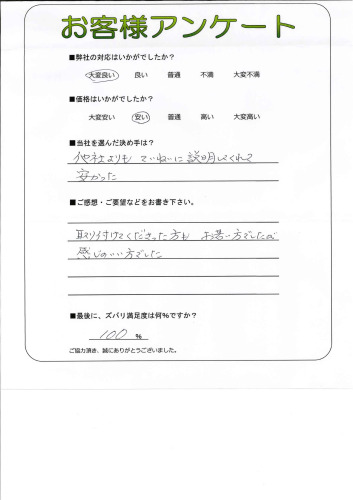 お客様アンケート
■弊社の対応はいかがでしたか？
大変良い 良い 普通 不満 大変不満
■価格はいかがでしたか？
大変安い 安い 普通 高い 大変高い
■当社を選んだ決め手は？
他社よりも ていねいに説明してくれて
安かった
■ご感想・ご要望などをお書き下さい。
取り付けてくださった方も お若い方でしたが
感じのいい方でした
■最後に、ズバリ満足度は何％ですか？
100 %
ご協力頂き、誠にありがとうございました。